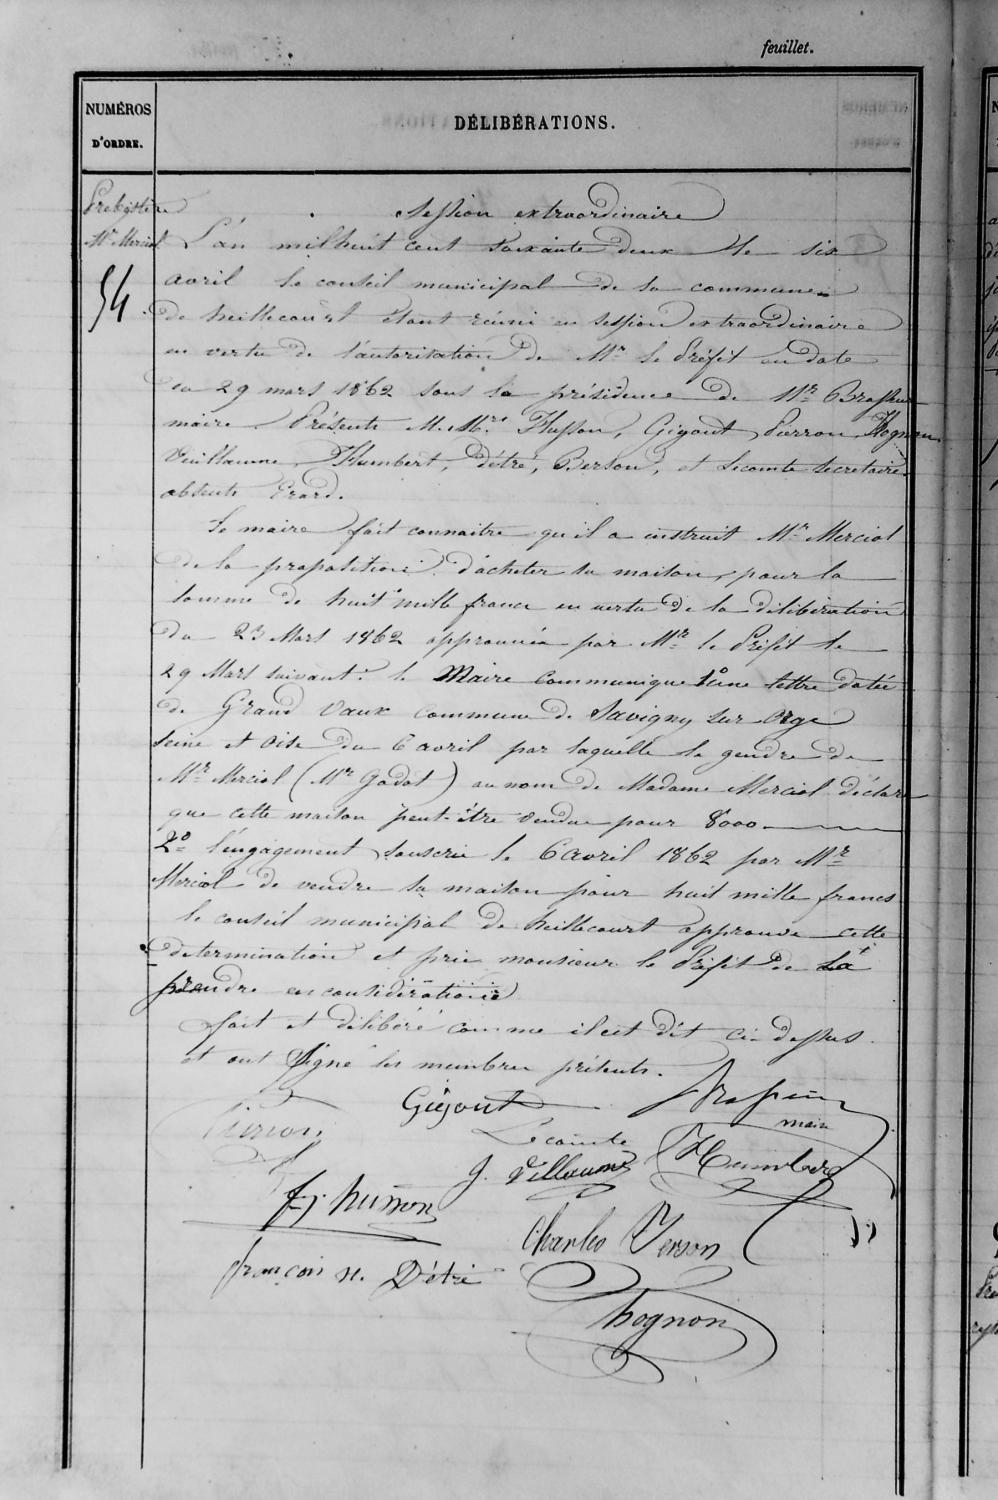 feuillet.
NUMÉROS
D'ORDRE.
DÉLIBÉRATIONS.
Presbytère
Mr Merciol
54
Session extraordinaire
L'an mil huit cent soixante deux le six
avril le conseil municipal de la commune
de heillecourt étant réuni en session extraordinaire
en vertu de l'autorisation de Mr le Préfet en date
du 29 mars 1862 sous la présidence de Mr
maire Présents M. Mrs Husson, Gigout, Pierron, Hognon
Vuillaume, Humbert, Détré, Berson, et Lecomte secretaire
absents Erard.
Le maire fait connaitre qu'il a instruit Mr Merciol
de la proposition d'acheter sa maison, pour la
somme de huit mille francs en vertu de la délibération
du 23 Mars 1862 approuvée par Mr le Préfet le
29 Mars suivant. le Maire communique 1o une lettre datée
de Grand Vaux commune de Savigny sur Orge
Seine et Oise du 6 avril par laquelle le gendre de
Mr Merciol (Mr Godot) au nom de Madame Merciol déclare
que cette maison peut-être vendue pour 8000
2o l'engagement souscrit le 6 avril 1862 par Mr
Merciol de vendre sa maison pour huit mille francs
le conseil municipal de heillecourt approuve cette
determination et prie monsieur le Préfet de la
prendre en considération
fait et délibéré comme il est dit ci-dessus.
et ont Signé les membres présents.
Gigout
maire
Pierron
Lecomte
J. Villaume
Humbert
husson
Charles Verson
françois n. Détré
hognon